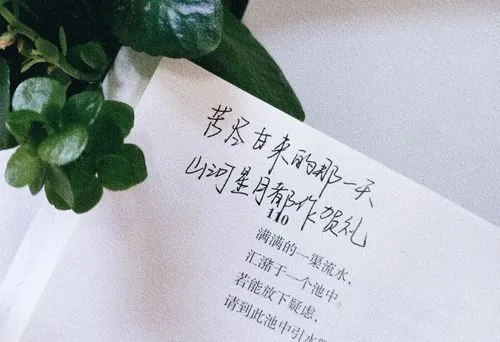 苦尽甘来的那一天
山河星月都作贺礼
110
满满的一渠流水，
汇潴于一个池中。
若能放下疑虑，
请到此池中引水